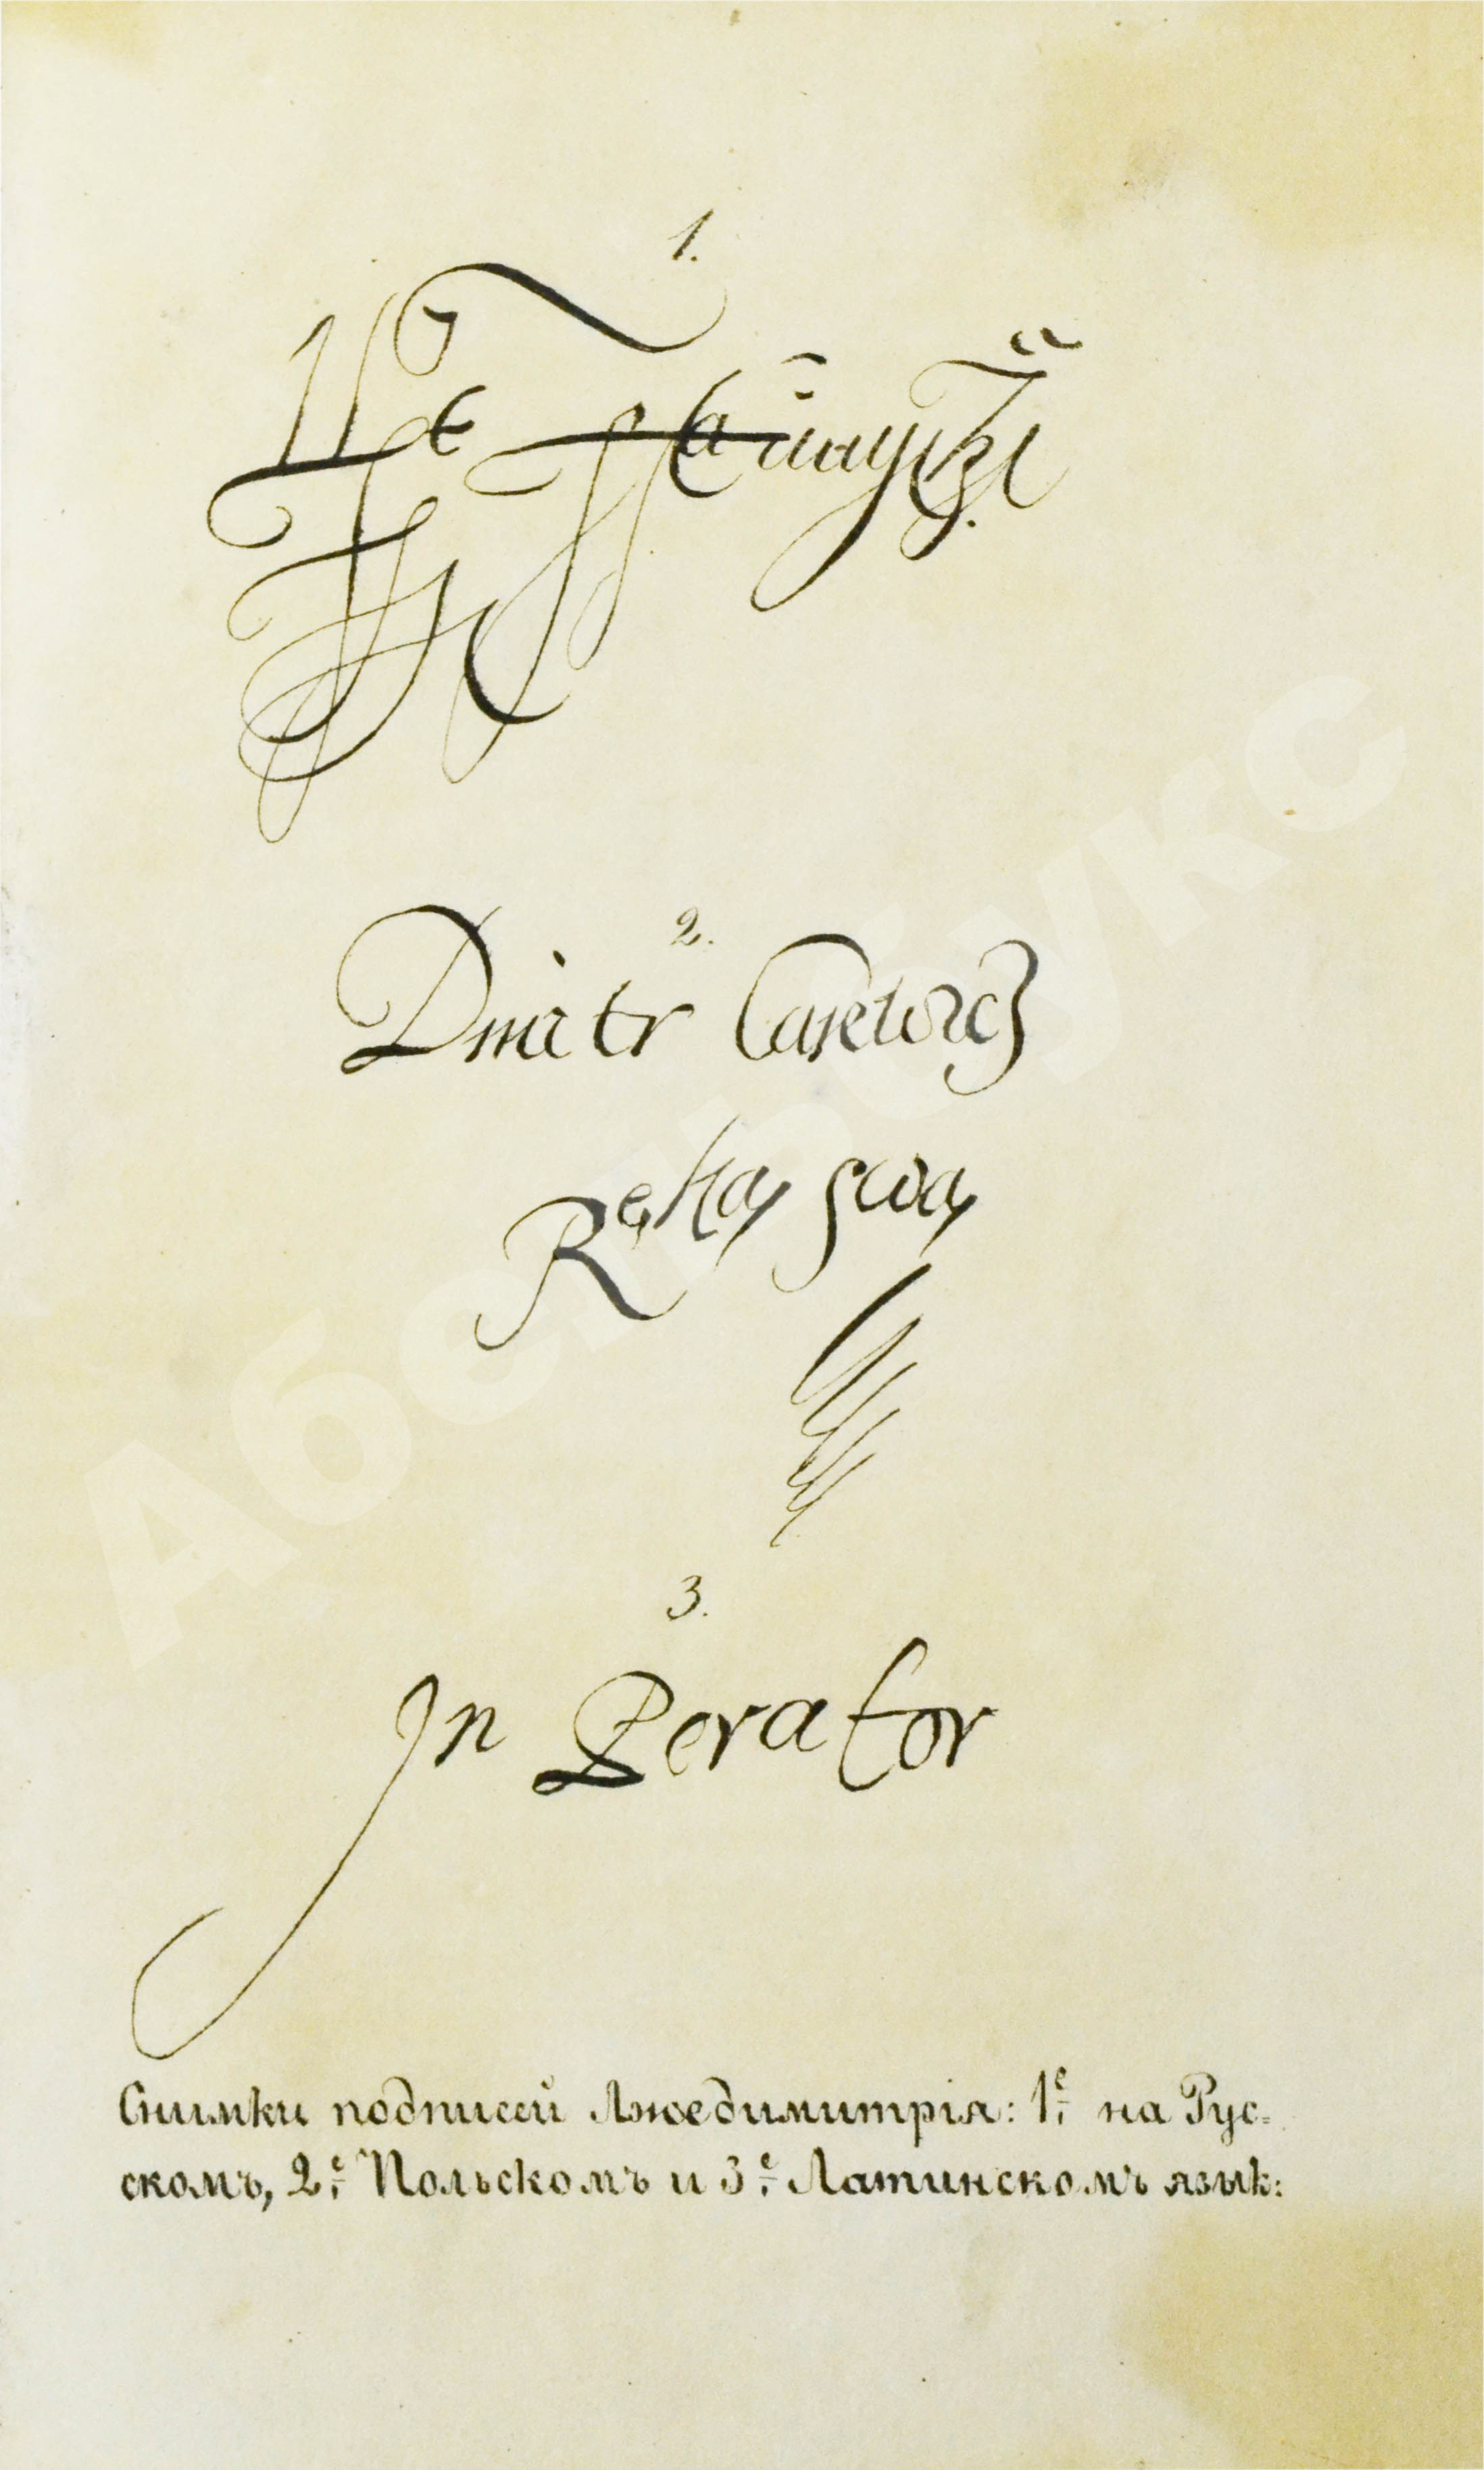 1.
2.
Dmitr Carewicz
Ręką swą
3.
In Perator
Снимки подписей Лжедимитрія: 1е на Рус-
скомъ, 2е Польскомъ и 3е Латинскомъ язык:
Абельбукс